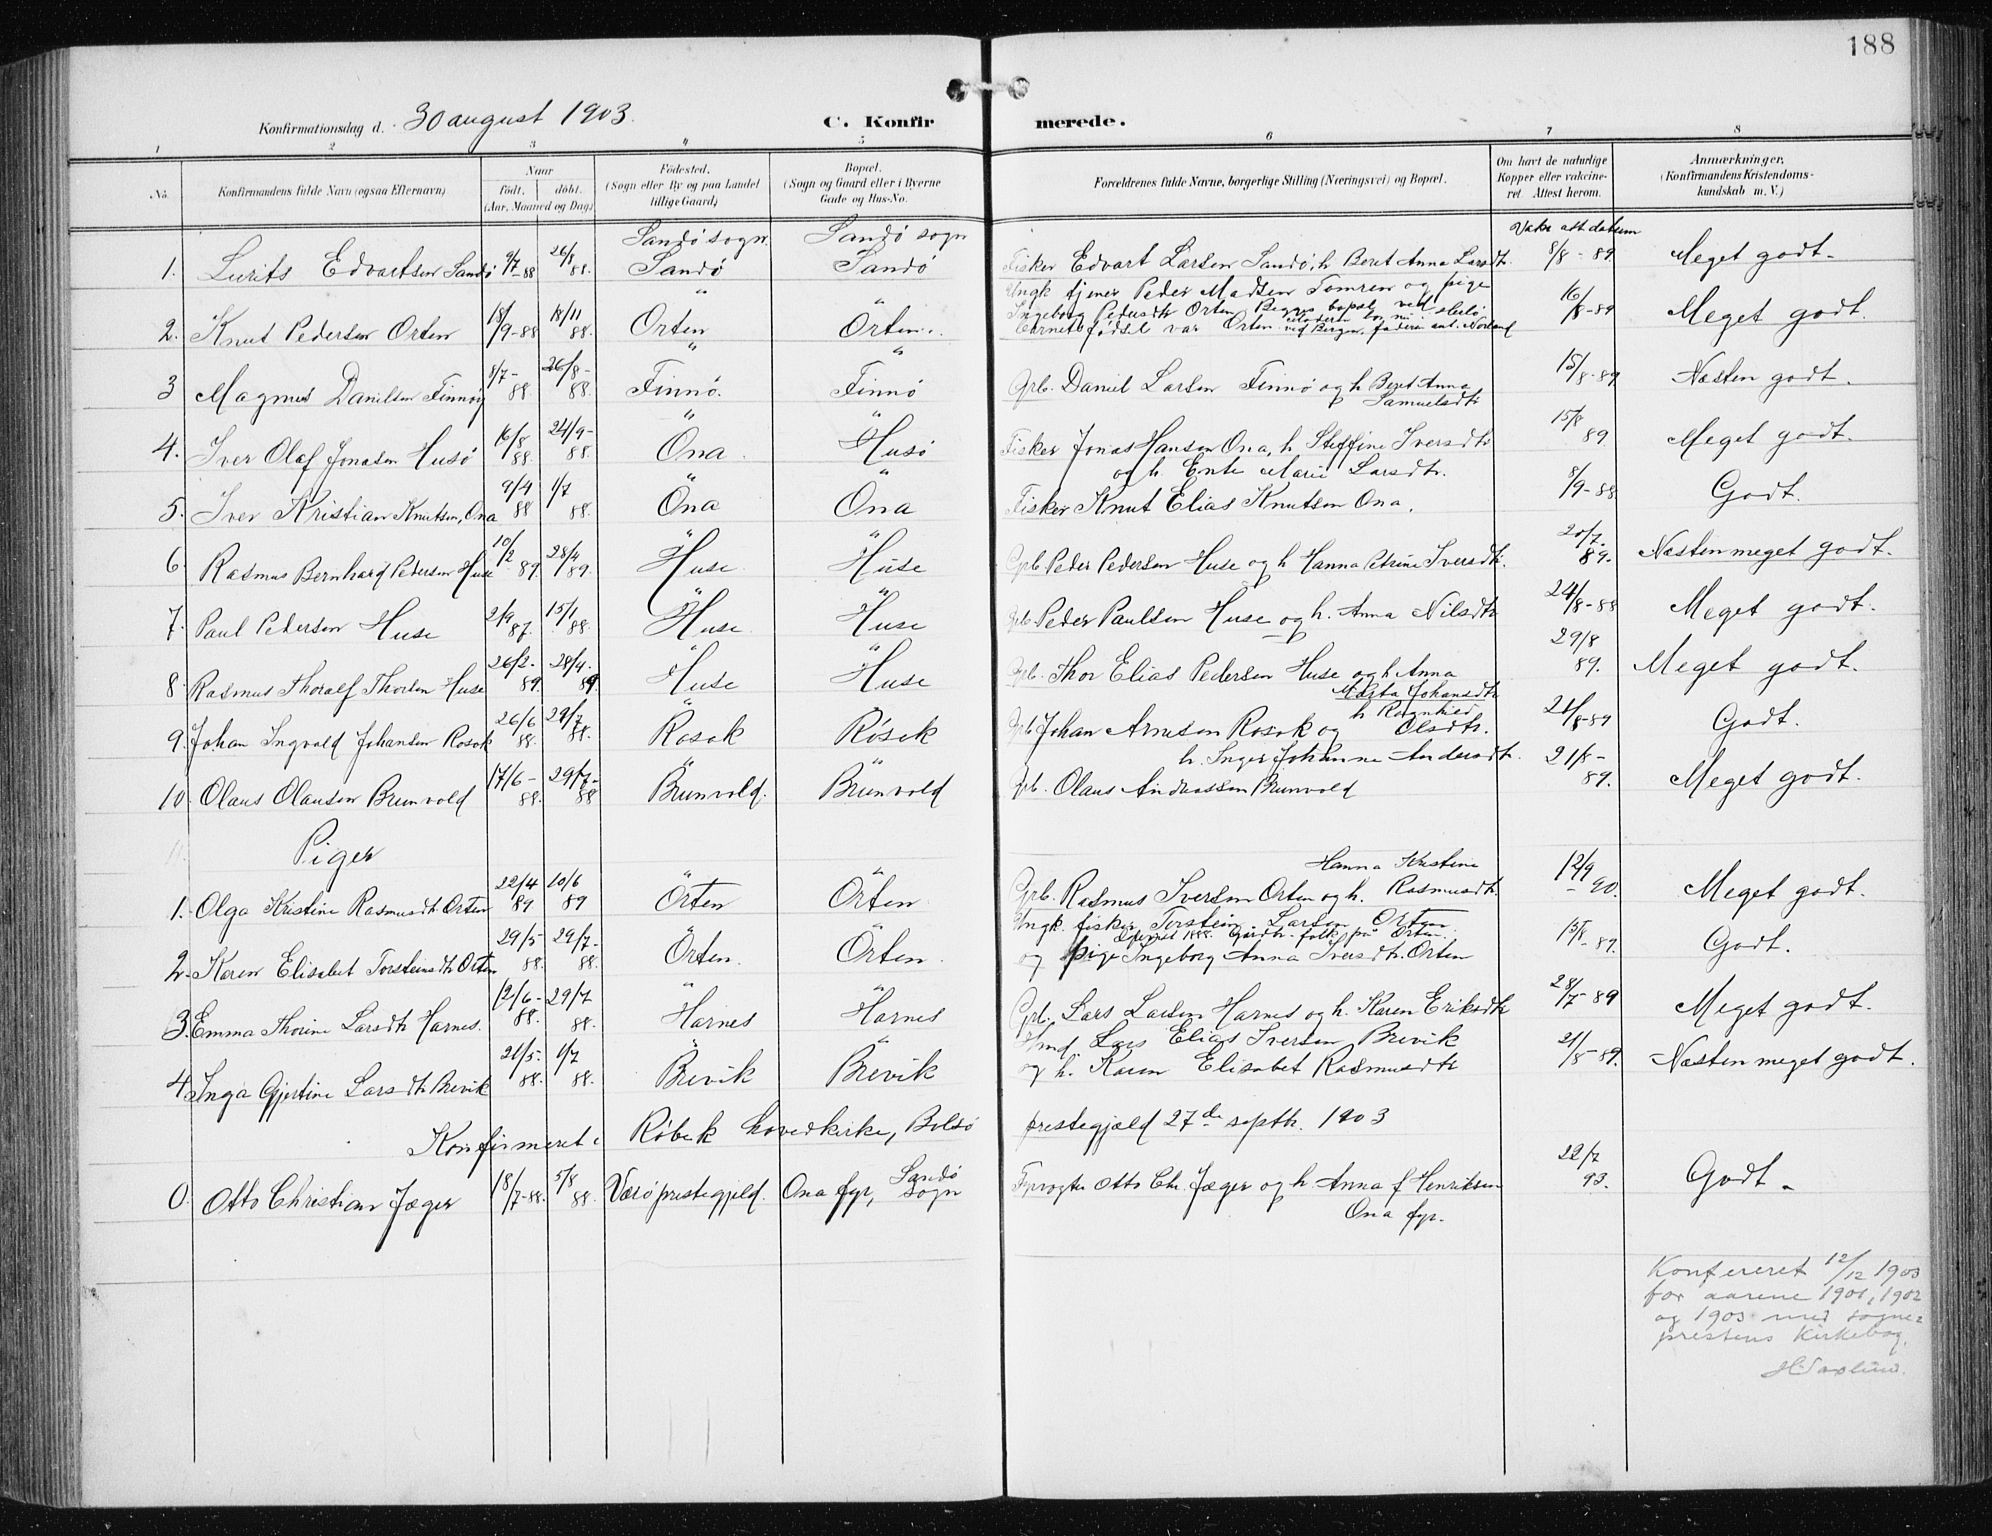 188
Konfirmationsdag d. 30 august 1903. C. Konfirmerede.
1 2 3 4 5 6 7 8
No. Konfirmandens fulde Navn (ogsaa Efternavn) Naar født, døbt. (Aar, Maaned og Dag) Fødested. (Sogn eller By og paa Landet tillige Gaard) Bopæl. (Sogn og Gaard eller i Byerne Gade og Hus-No. Forældrenes fulde Navne, borgerlige Stilling (Næringsvei) og Bopæl. Om havt de naturlige Kopper eller vakcineret. Attest herom. Anmærkninger, (Konfirmandens Kristendomskundskab m. V.)
Sandö sogn Sandö sogn Vakc att datum
1. Lurits Edvartsen Sandö 9/7-88 26/8 88. Sandö Sandö Fisker Edvart Larsen Sandö, h. Beret Anna Larsdtr. 8/8-89 Meget godt.
2. Knut Pedersen Orten 18/9-88 18/11 88. " Orten " Orten. Ungk tjener Peder Madsen Tomren og pige
Ingeborg Pedersdtr Orten Begges bopæl ved
Barnets fødsel var Orten 16/8-89 Meget godt.
3 Magnus Danielsen Finnöy 8/7-88 26/8-88. " Finnö. " Finnö Grb. Daniel Larsen Finnö og h Beret Anna Samuelsdtr 15/8-89 Næsten godt.
4. Iver Olaf Jonasen Husö 16/8 88. 24/9-88. " Ona. " Husö Fisker Jonas Hansen Ona, h. Steffine Iversdtr 15/8 89 Meget godt.
og h. Ente Marie Larsdtr.
5. Iver Kristian Knutsen, Ona 9/4 88 1/7 88. " Ona " Ona Fisker Knut Elias Knutsen Ona. 8/9-88 Godt.
6 Rasmus Bernhard Pedersen Huse 10/2 89. 28/4 89. " Huse. " Huse Grb Peder Pedersen Huse og h Hanna Petrine Iversdtr. 20/7-89. Næsten meget godt.
7. Paul Pedersen Huse 2/9 87. 15/1 88. " Huse " Huse Grb Peder Paulsen Huse og h. Anna Nilsdtr 24/8-88 Meget godt.
8. Rasmus Thoralf Thorsen Huse 26/2-89. 28/4-89. " Huse " Huse Grb. Thor Elias Pedersen Huse og h Anna Marta Johansdtr 29/8 89. Meget godt.
9. Johan Ingvald Johansen Rosok 26/6 88. 29/7 88. " Rosok " Rösok Grb Johan Arnesen Rosok og h Ragnhild Olsdtr. 21/8-89 Godt.
h. Inger Johanne Andersdtr.
10. Olaus Olausen Brunvold 17/6-88. 29/7-88 " Brunvold. " Brunvold Grb. Olaus Andreassen Brunvold 21/8-89. Meget godt.
Piger
1. Olga Kristine Rasmusdtr Orten 22/4 89 10/6 89 " Orten " Orten Grb. Rasmus Iversen Orten og h. Hanna Kristine Rasmusdtr. 12/9 90. Meget godt.
2. Karen Elisabet Torsteinsdtr Orten 29/5-88. 29/7-88. " Orten. " Orten. Ungk. fisker Torstein Larsen Orten
Gardbr. folk på Orten.
og pige Ingeborg Anna Iversdtr. Orten 15/8-89. Godt.
3. Emma Thorine Larsdtr Harnes. 12/6-88. 29/7 88. " Harnes " Harnes Grb. Lars Larsen Harnes og h. Karen Eriksdtr 28/7-89 Meget godt.
4. Inga Gjertine Larsdtr Brevik 21/5-88. 1/7 88. " Brevik " Brevik Hmd Lars Elias Iversen Brevik
og h. Karen Elisabet Rasmusdtr 21/8-89. Næsten meget godt.
Konfirmeret i Röbek hovedkirke, Bolsö prestegjæld 27de septb. 1903
0. Otto Christian Jæger 18/7-88. 5/8 88. Værö prestegjeld. Ona fyr, Sandö sogn Fyrvogter Otto Chr. Jæger og h Anna f Henriksen 22/7 93. Godt.
Ona fyr.
Konfereret 12/12 1903
for aarene 1901, 1902
og 1903 med sogne-
prestens Kirkebog.